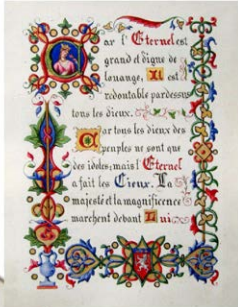 Car l' Eternel est
grand et digne de
louange, Il est
redoutable pardessus
tous les dieux.
Car tous les dieux des
peuples ne sont que
des idoles; mais l' Eternel
a fait les Cieux. La
majesté et la magnificence
marchent devant Lui